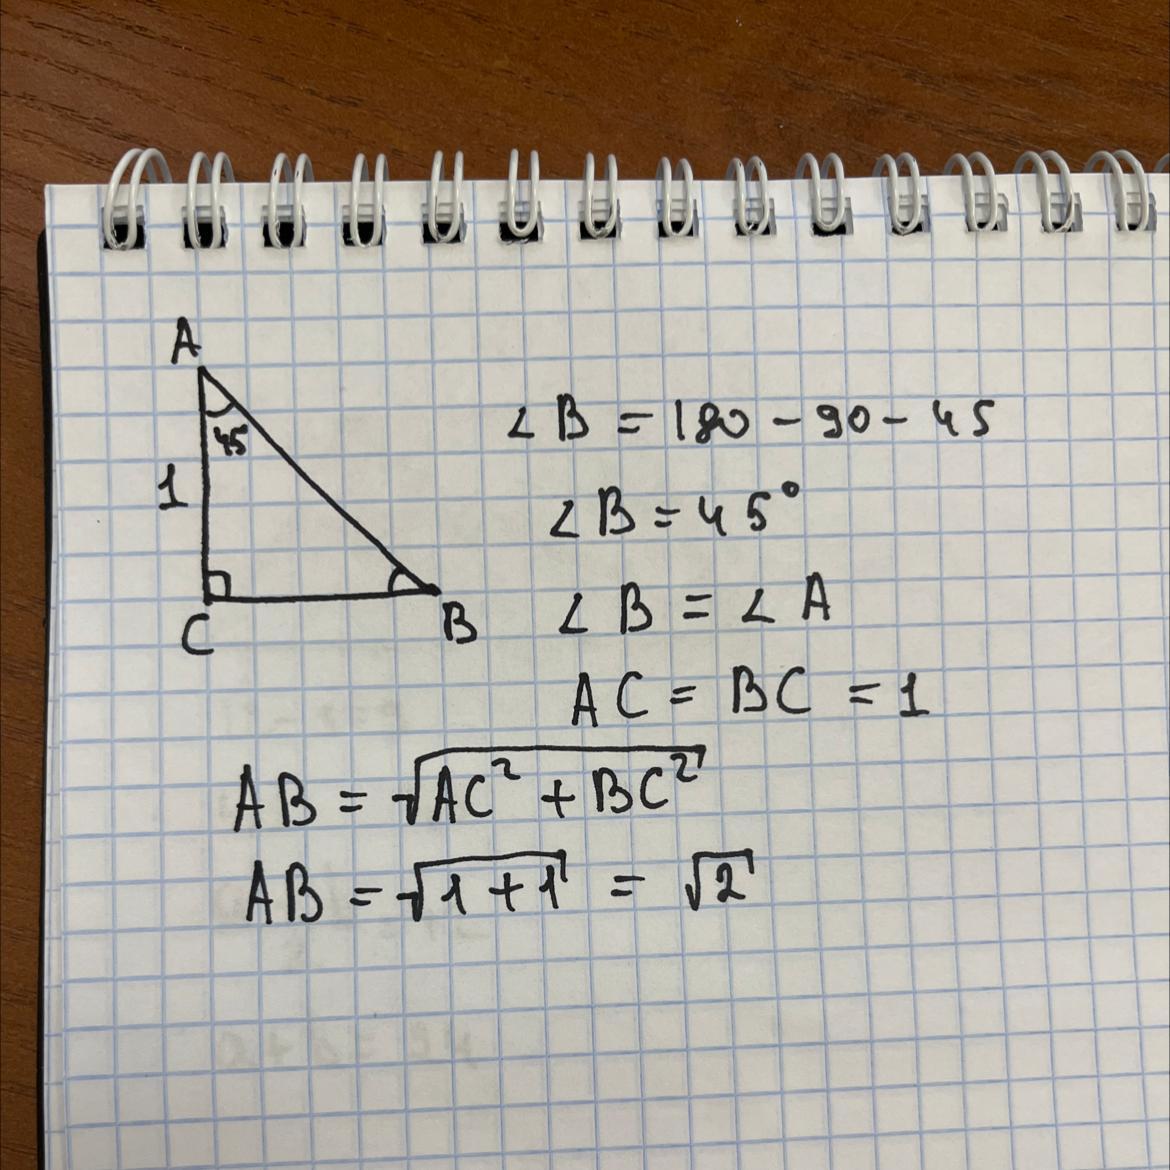 A
45
1
C
B
∠B = 180 - 90 - 45
∠B = 45°
∠B = ∠A
AC = BC = 1
AB = √(AC² + BC²)
AB = √(1 + 1) = √2